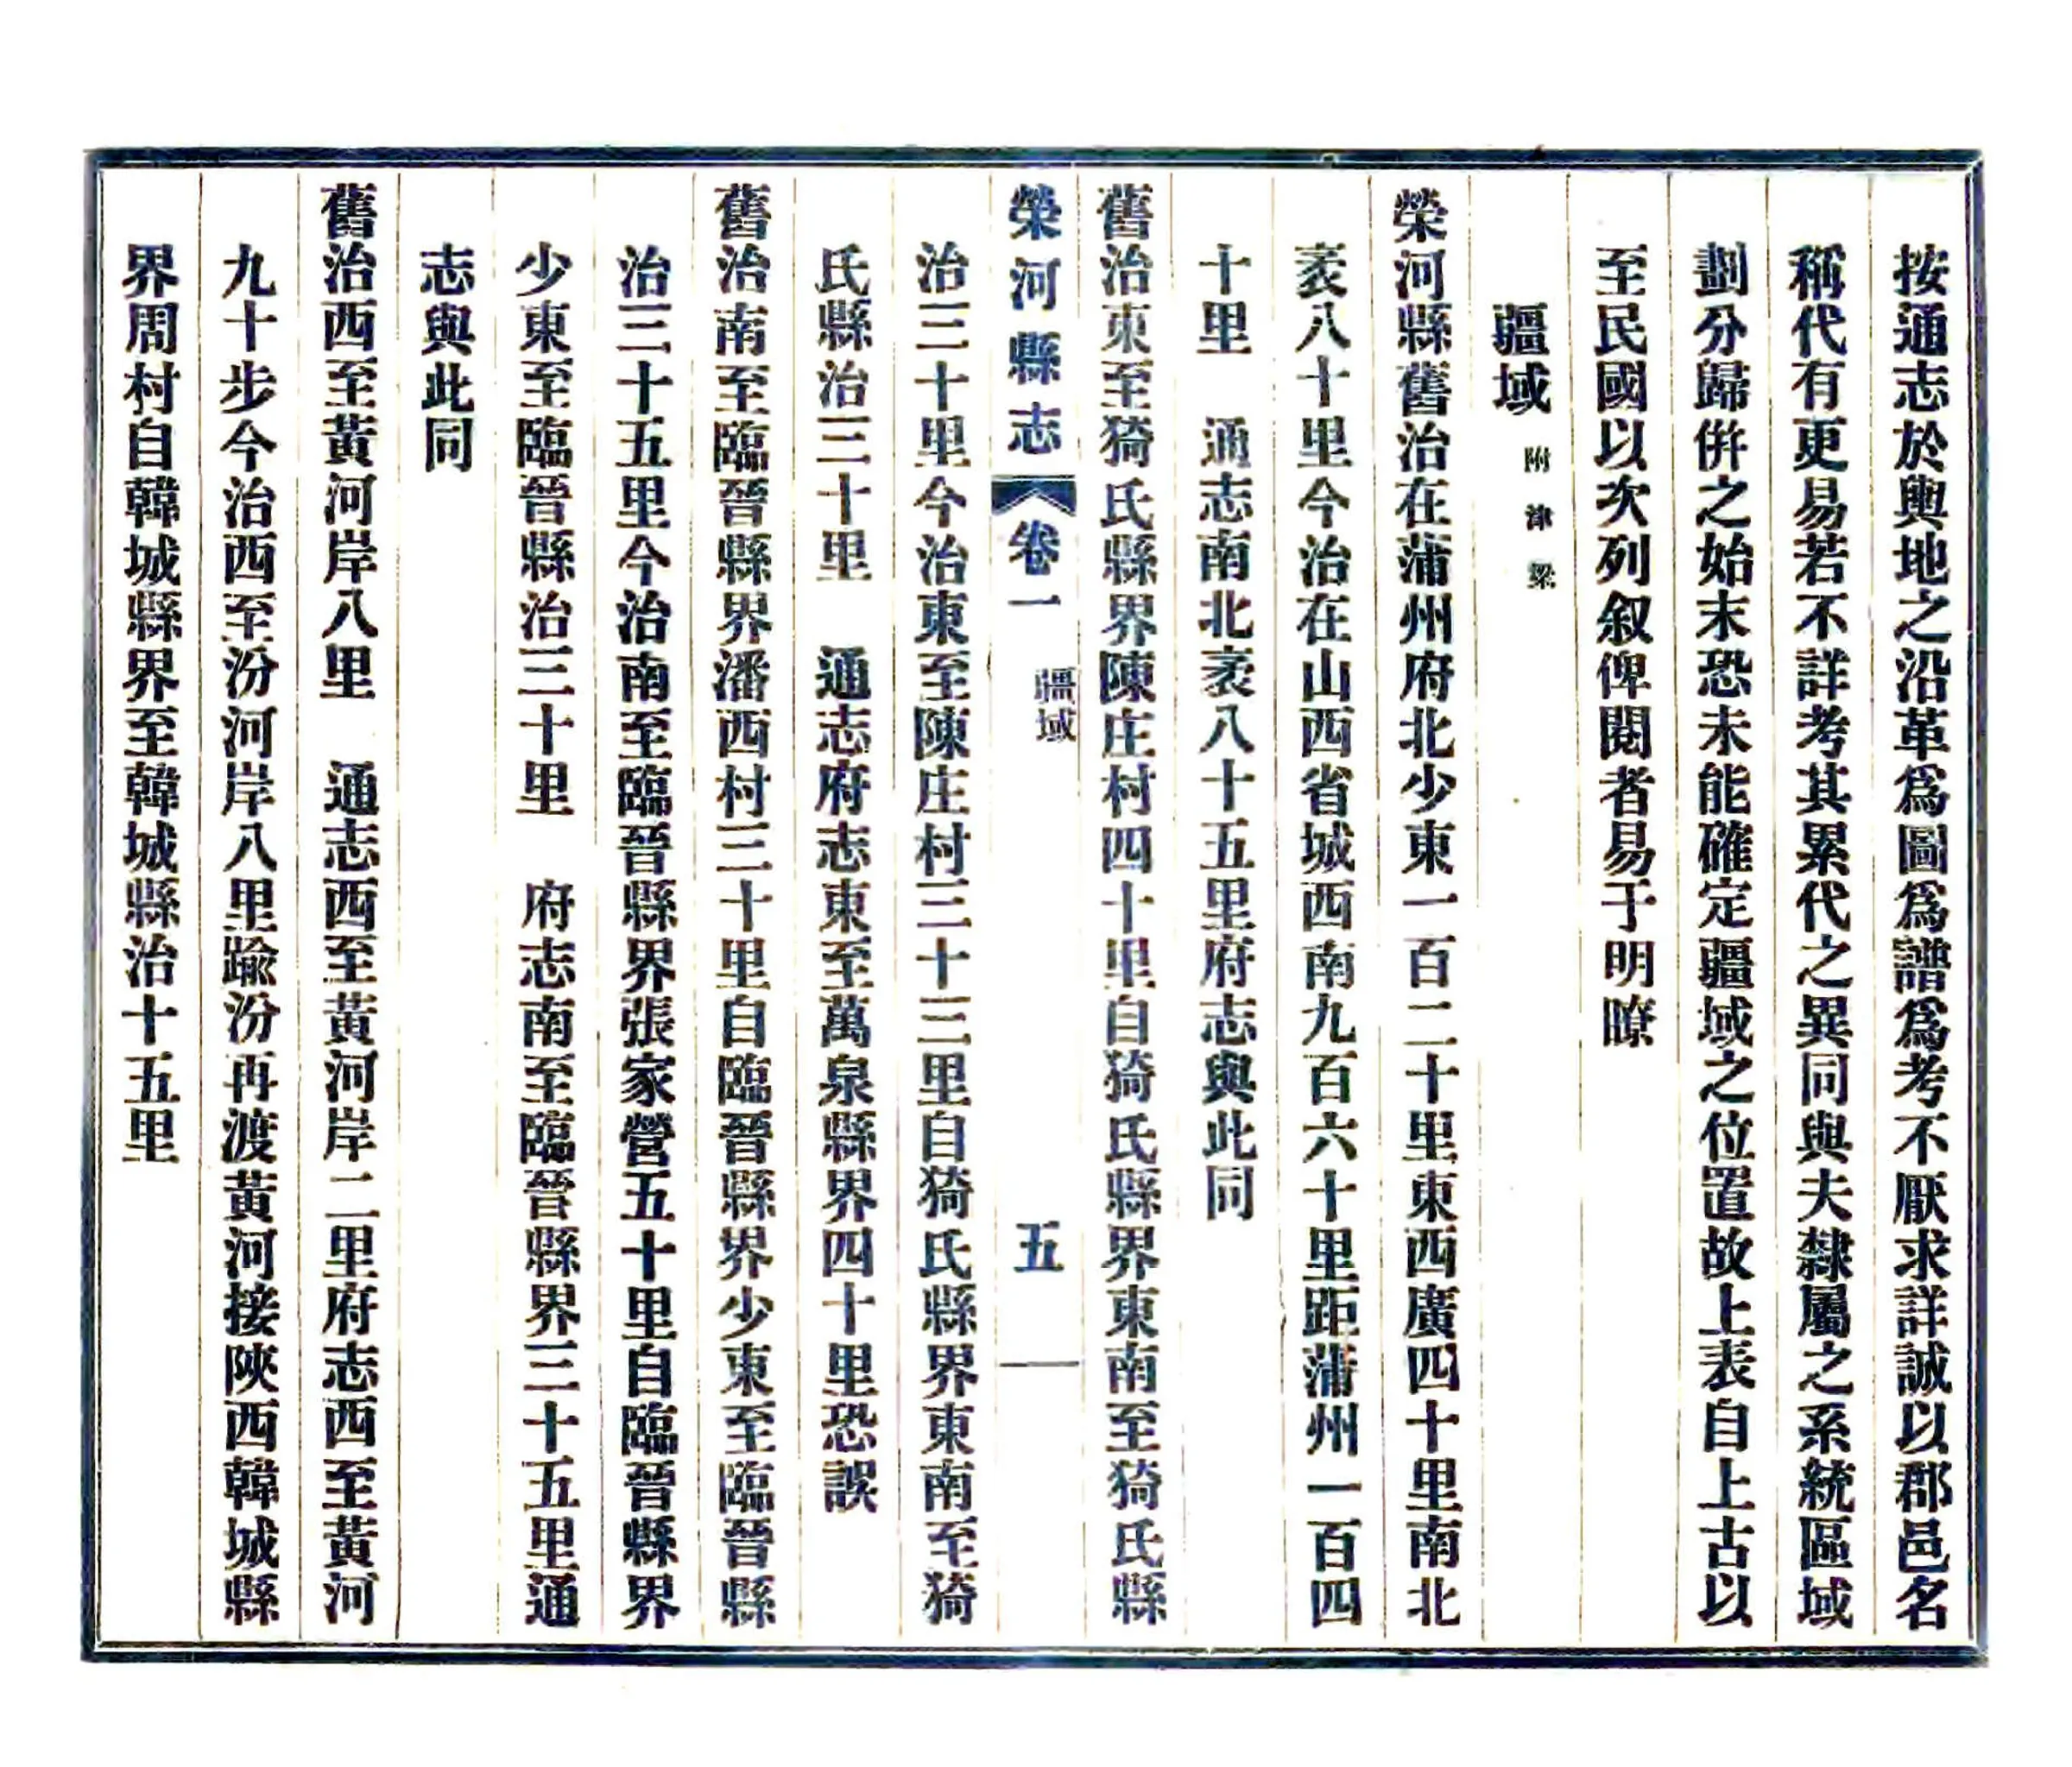 按通志於輿地之沿革爲圖爲譜爲考不厭求詳誠以郡邑名
稱代有更易若不詳考其累代之異同與夫隸屬之系統區域
劃分歸併之始末恐未能確定疆域之位置故上表自上古以
至民國以次列叙俾閱者易于明瞭
疆域 附津梁
榮河縣舊治在蒲州府北少東一百二十里東西廣四十里南北
袤八十里今治在山西省城西南九百六十里距蒲州一百四
十里 通志南北袤八十五里府志與此同
舊治東至猗氏縣界陳庄村四十里自猗氏縣界東南至猗氏縣
榮河縣志 卷一 疆域 五
治三十里今治東至陳庄村三十三里自猗氏縣界東南至猗
氏縣治三十里 通志府志東至萬泉縣界四十里恐誤
舊治南至臨晉縣界潘西村三十里自臨晉縣界少東至臨晉縣
治三十五里今治南至臨晉縣界張家營五十里自臨晉縣界
少東至臨晉縣治三十里 府志南至臨晉縣界三十五里通
志與此同
舊治西至黃河岸八里 通志西至黃河岸二里府志西至黃河
九十步今治西至汾河岸八里踰汾再渡黃河接陝西韓城縣
界周村自韓城縣界至韓城縣治十五里